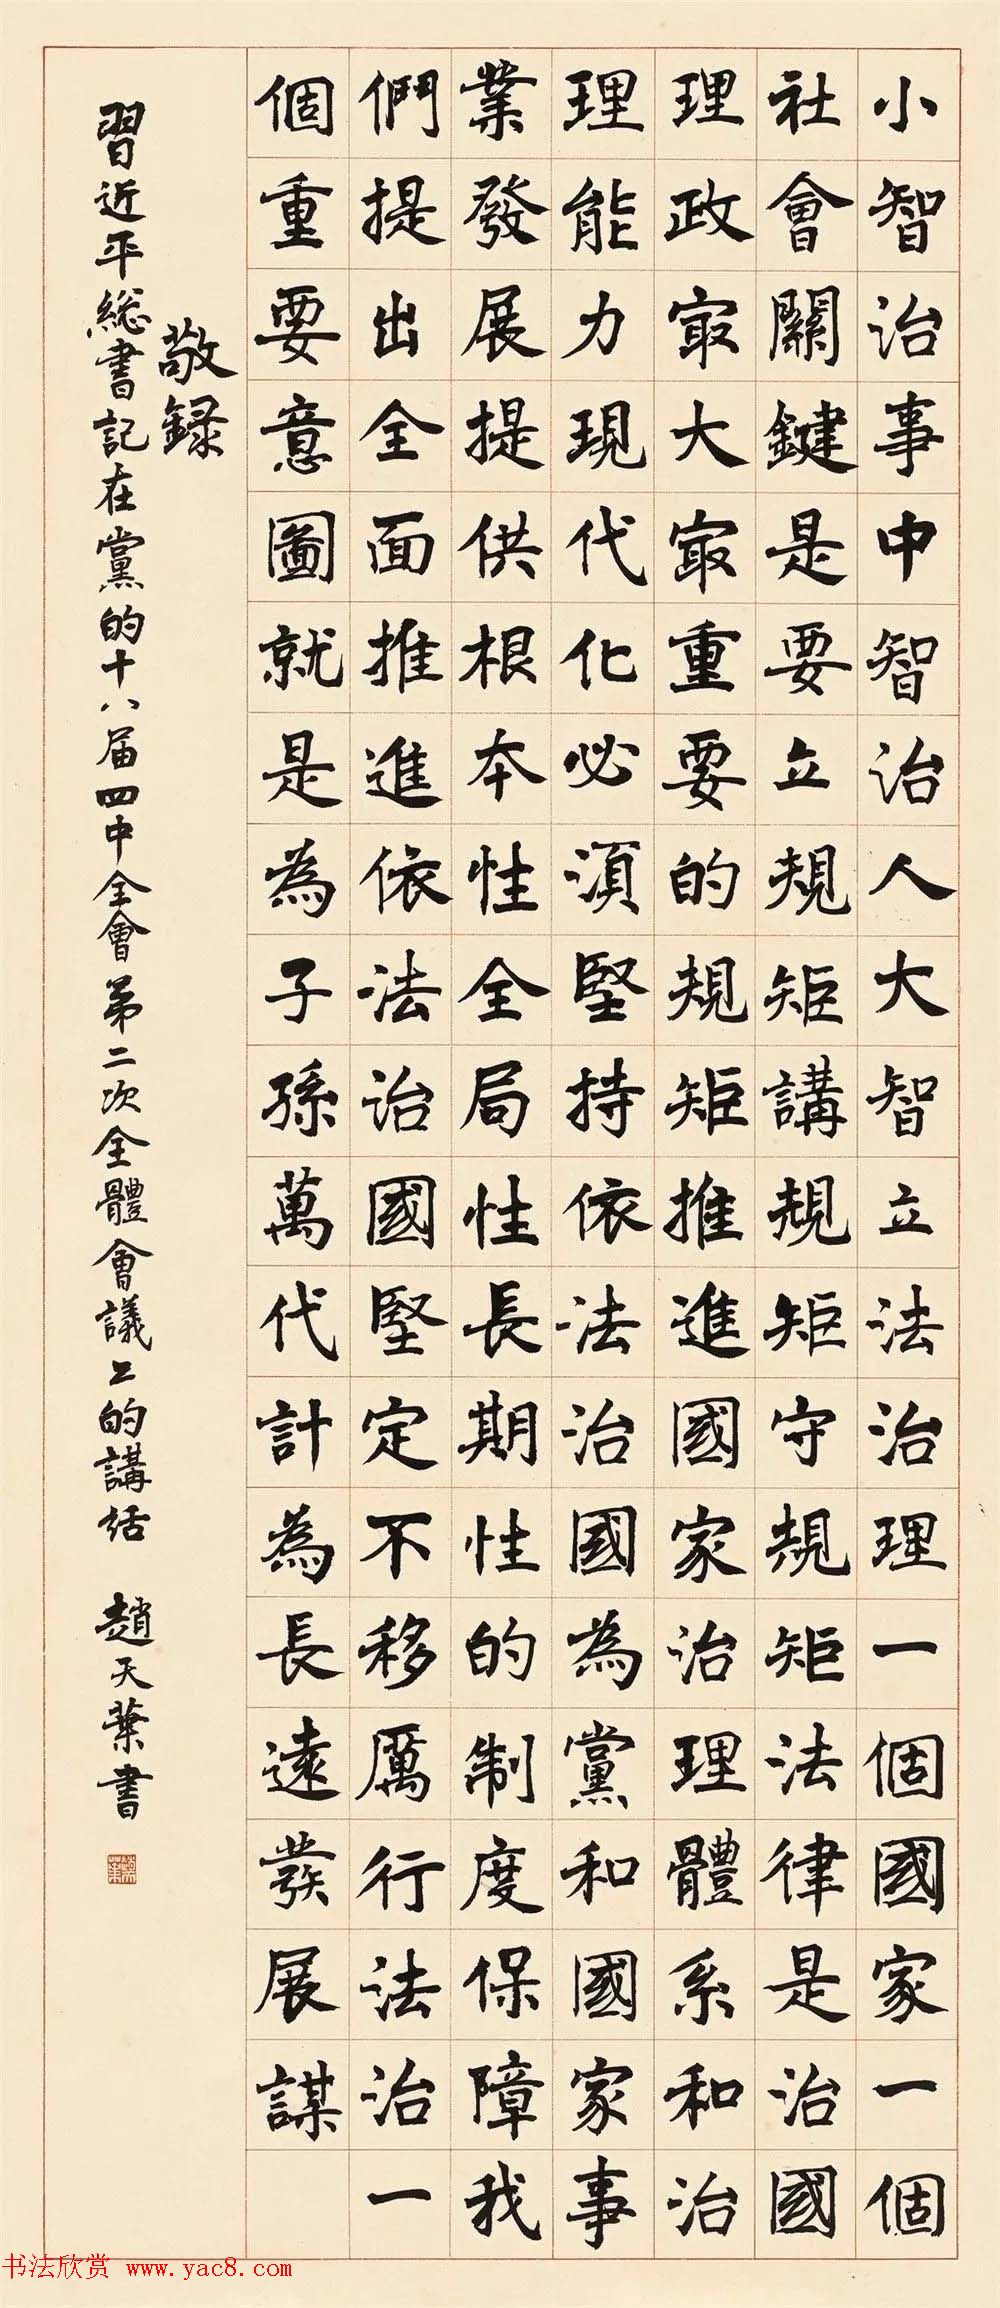 小智治事中智治人大智立法治理一個國家一個
社會關鍵是要立規矩講規矩守規矩法律是治國
理政最大最重要的規矩推進國家治理體系和治
理能力現代化必須堅持依法治國為黨和國家事
業發展提供根本性全局性長期性的制度保障我
們提出全面推進依法治國堅定不移厲行法治一
個重要意圖就是為子孫萬代計為長遠發展謀
敬録
習近平総書記在黨的十八届四中全會第二次全體會議上的講話 趙天葉書
书法欣赏 www.yac8.com